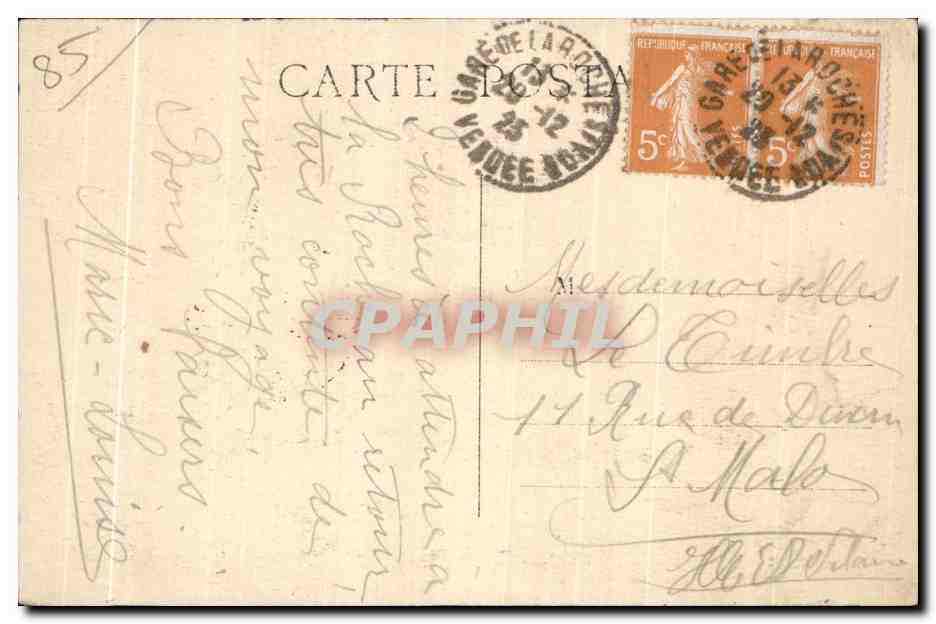 85
CARTE POSTA
GARE DE LA ROCHE S YON
13
29 -12
25
VENDEE
REPUBLIQUE FRANÇAISE
5c
GARE DE LA ROCHE S YON
13
29 -12
25
VENDEE
FRANÇAISE
5c
POSTES
heures d'attendre a
la Roche au retour,
très contente de
mon voyage.
Bons baisers.
Marie-Louise
Mesdemoiselles
Le Timbre
11 Rue de Dinan
St Malo
Ille Et Vilaine
CPAPHIL